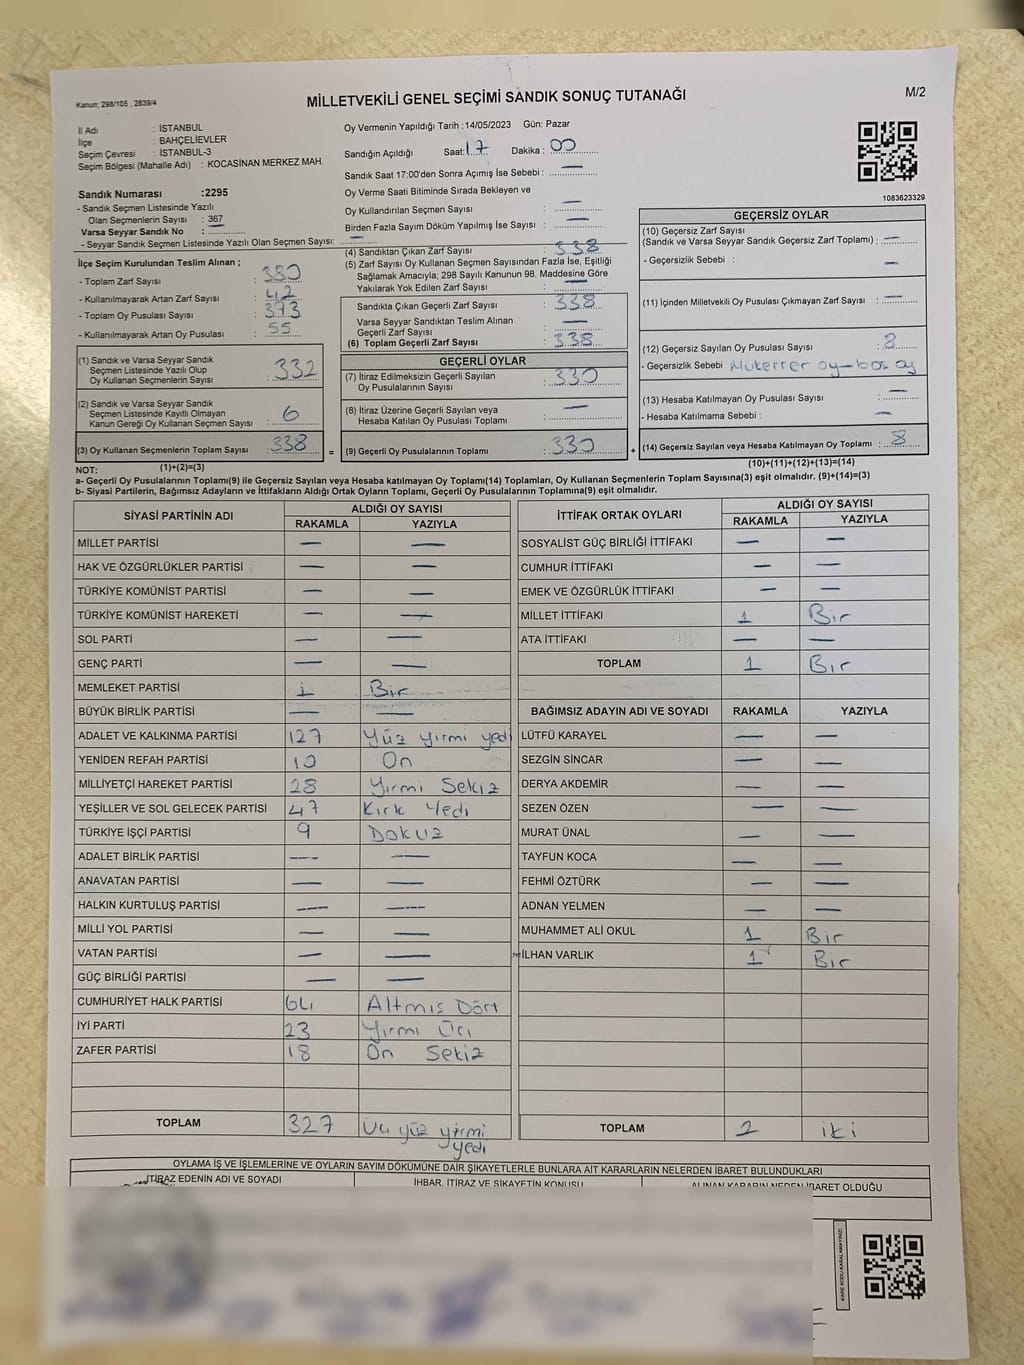 Kanun; 298/105 , 2839/4
MİLLETVEKİLİ GENEL SEÇİMİ SANDIK SONUÇ TUTANAĞI
M/2
İl Adı : İSTANBUL
İlçe : BAHÇELİEVLER
Seçim Çevresi : İSTANBUL-3
Seçim Bölgesi (Mahalle Adı) : KOCASİNAN MERKEZ MAH.
Sandık Numarası :2295
- Sandık Seçmen Listesinde Yazılı
Olan Seçmenlerin Sayısı : 367
Varsa Seyyar Sandık No : —
- Seyyar Sandık Seçmen Listesinde Yazılı Olan Seçmen Sayısı: —
Oy Vermenin Yapıldığı Tarih :14/05/2023 Gün: Pazar
Sandığın Açıldığı Saat: 17 Dakika : 00
Sandık Saat 17:00'den Sonra Açımış İse Sebebi : —
Oy Verme Saati Bitiminde Sırada Bekleyen ve
Oy Kullandırılan Seçmen Sayısı : —
Birden Fazla Sayım Döküm Yapılmış İse Sayısı : —
1083623329
İlçe Seçim Kurulundan Teslim Alınan ;
- Toplam Zarf Sayısı : 380
- Kullanılmayarak Artan Zarf Sayısı : 42
- Toplam Oy Pusulası Sayısı : 393
- Kullanılmayarak Artan Oy Pusulası : 55
(1) Sandık ve Varsa Seyyar Sandık
Seçmen Listesinde Yazılı Olup
Oy Kullanan Seçmenlerin Sayısı : 332
(2) Sandık ve Varsa Seyyar Sandık
Seçmen Listesinde Kayıtlı Olmayan
Kanun Gereği Oy Kullanan Seçmen Sayısı : 6
(3) Oy Kullanan Seçmenlerin Toplam Sayısı : 338
(1)+(2)=(3)
(4) Sandıktan Çıkan Zarf Sayısı : 338
(5) Zarf Sayısı Oy Kullanan Seçmen Sayısından Fazla İse, Eşitliği
Sağlamak Amacıyla; 298 Sayılı Kanunun 98. Maddesine Göre
Yakılarak Yok Edilen Zarf Sayısı : —
Sandıkta Çıkan Geçerli Zarf Sayısı : 338
Varsa Seyyar Sandıktan Teslim Alınan
Geçerli Zarf Sayısı : —
(6) Toplam Geçerli Zarf Sayısı : 338
GEÇERLİ OYLAR
(7) İtiraz Edilmeksizin Geçerli Sayılan
Oy Pusulalarının Sayısı : 330
(8) İtiraz Üzerine Geçerli Sayılan veya
Hesaba Katılan Oy Pusulası Toplamı : —
= (9) Geçerli Oy Pusulalarının Toplamı : 330 +
GEÇERSİZ OYLAR
(10) Geçersiz Zarf Sayısı
(Sandık ve Varsa Seyyar Sandık Geçersiz Zarf Toplamı) : —
- Geçersizlik Sebebi : —
(11) İçinden Milletvekili Oy Pusulası Çıkmayan Zarf Sayısı : —
(12) Geçersiz Sayılan Oy Pusulası Sayısı : 8
- Geçersizlik Sebebi : Mükerrer oy-boş oy
(13) Hesaba Katılmayan Oy Pusulası Sayısı : —
- Hesaba Katılmama Sebebi : —
(14) Geçersiz Sayılan veya Hesaba Katılmayan Oy Toplamı : 8
(10)+(11)+(12)+(13)=(14)
NOT:
a- Geçerli Oy Pusulalarının Toplamı(9) ile Geçersiz Sayılan veya Hesaba katılmayan Oy Toplamı(14) Toplamları, Oy Kullanan Seçmenlerin Toplam Sayısına(3) eşit olmalıdır. (9)+(14)=(3)
b- Siyasi Partilerin, Bağımsız Adayların ve İttifakların Aldığı Ortak Oyların Toplamı, Geçerli Oy Pusulalarının Toplamına(9) eşit olmalıdır.
SİYASİ PARTİNİN ADI ALDIĞI OY SAYISI
RAKAMLA YAZIYLA
MİLLET PARTİSİ — —
HAK VE ÖZGÜRLÜKLER PARTİSİ — —
TÜRKİYE KOMÜNİST PARTİSİ — —
TÜRKİYE KOMÜNİST HAREKETİ — —
SOL PARTİ — —
GENÇ PARTİ — —
MEMLEKET PARTİSİ 1 Bir
BÜYÜK BİRLİK PARTİSİ — —
ADALET VE KALKINMA PARTİSİ 127 Yüz yirmi yedi
YENİDEN REFAH PARTİSİ 10 On
MİLLİYETÇİ HAREKET PARTİSİ 28 Yirmi Sekiz
YEŞİLLER VE SOL GELECEK PARTİSİ 47 Kırk Yedi
TÜRKİYE İŞÇİ PARTİSİ 9 Dokuz
ADALET BİRLİK PARTİSİ — —
ANAVATAN PARTİSİ — —
HALKIN KURTULUŞ PARTİSİ — —
MİLLİ YOL PARTİSİ — —
VATAN PARTİSİ — —
GÜÇ BİRLİĞİ PARTİSİ — —
CUMHURİYET HALK PARTİSİ 64 Altmış Dört
İYİ PARTİ 23 Yirmi Üç
ZAFER PARTİSİ 18 On Sekiz
TOPLAM 327 Üç yüz yirmi
yedi
İTTİFAK ORTAK OYLARI ALDIĞI OY SAYISI
RAKAMLA YAZIYLA
SOSYALİST GÜÇ BİRLİĞİ İTTİFAKI — —
CUMHUR İTTİFAKI — —
EMEK VE ÖZGÜRLÜK İTTİFAKI — —
MİLLET İTTİFAKI 1 Bir
ATA İTTİFAKI — —
TOPLAM 1 Bir
BAĞIMSIZ ADAYIN ADI VE SOYADI RAKAMLA YAZIYLA
LÜTFÜ KARAYEL — —
SEZGİN SİNCAR — —
DERYA AKDEMİR — —
SEZEN ÖZEN — —
MURAT ÜNAL — —
TAYFUN KOCA — —
FEHMİ ÖZTÜRK — —
ADNAN YELMEN — —
MUHAMMET ALİ OKUL 1 Bir
İLHAN VARLIK 1 Bir
TOPLAM 2 iki
OYLAMA İŞ VE İŞLEMLERİNE VE OYLARIN SAYIM DÖKÜMÜNE DAİR ŞİKAYETLERLE BUNLARA AİT KARARLARIN NELERDEN İBARET BULUNDUKLARI
İTİRAZ EDENİN ADI VE SOYADI İHBAR, İTİRAZ VE ŞİKAYETİN KONUSU ALINAN KARARIN NEDEN İBARET OLDUĞU
KARE KODU KARALAMAYINIZ!